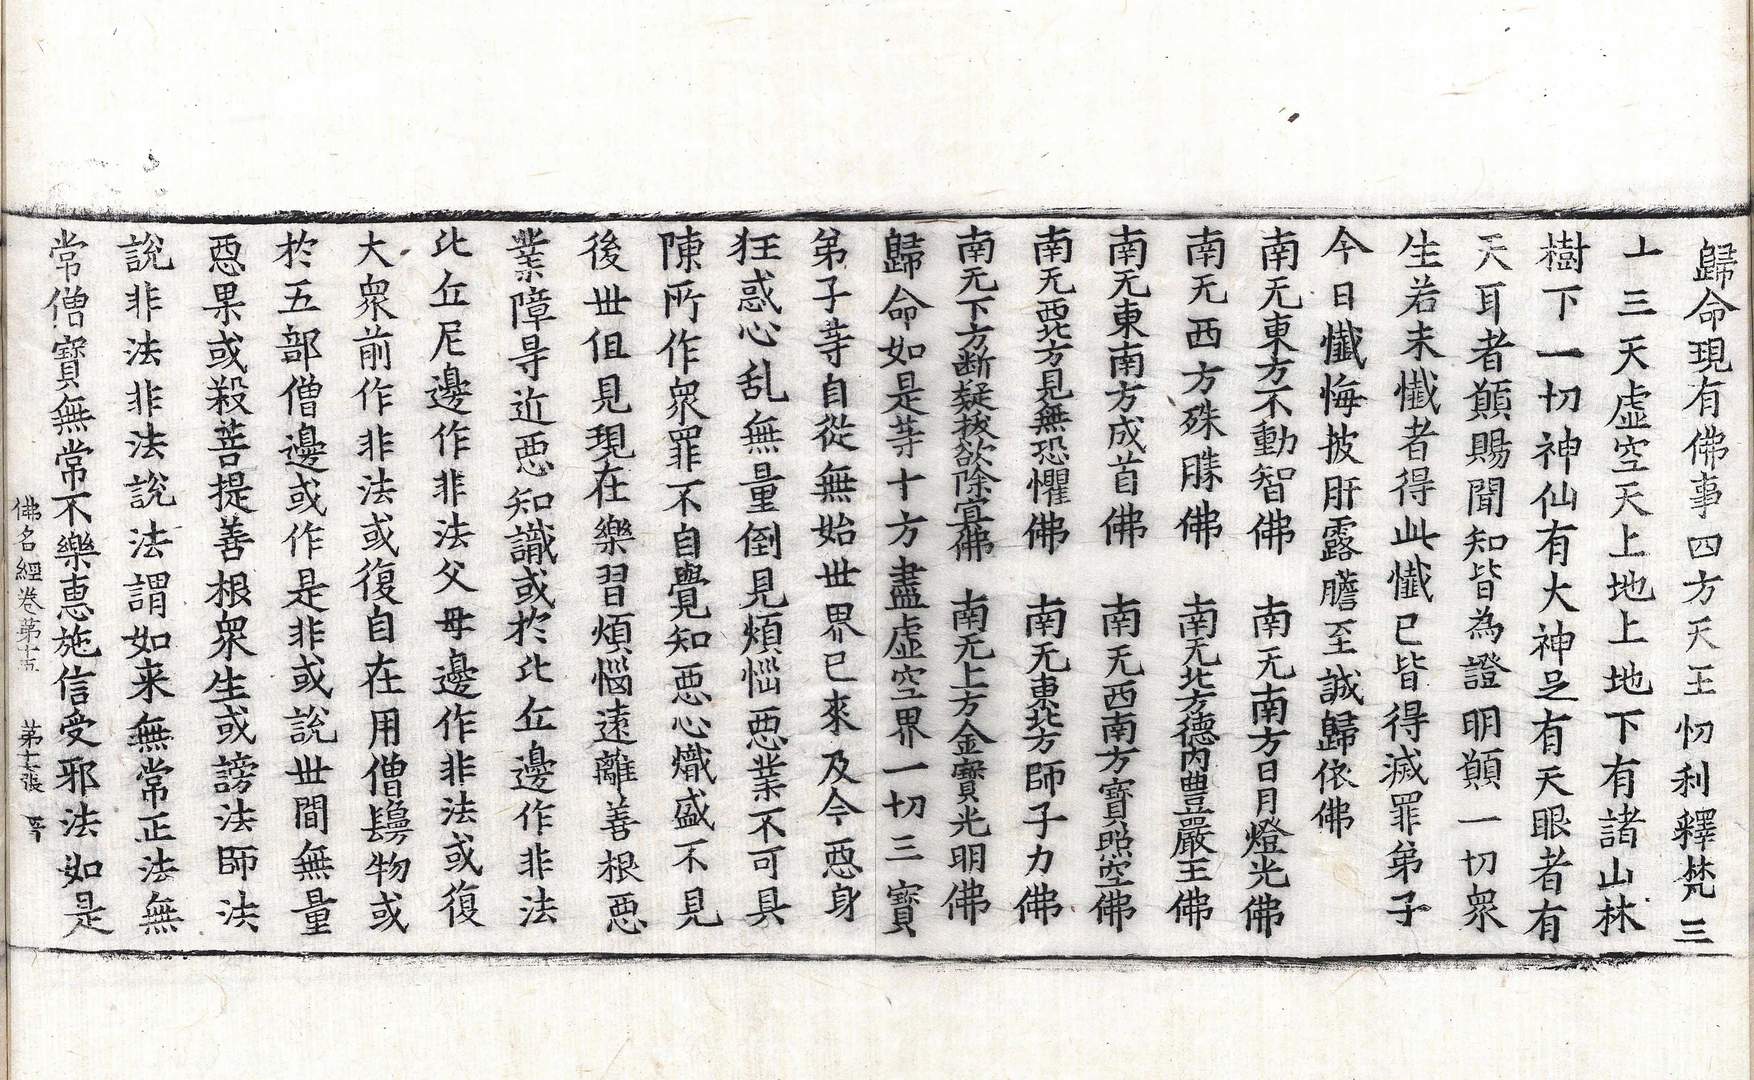 歸命現有佛事四方天王忉利釋梵三
十三天虛空天上地上地下有諸山林
樹下一切神仙有大神足有天眼者有
天耳者願賜聞知皆為證明願一切衆
生若未懺者得此懺已皆得滅罪弟子
今日懺悔披肝露膽至誠歸依佛
南无東方不動智佛　南无南方日月燈光佛
南无西方殊勝佛　南无北方德內豐嚴王佛
南无東南方成首佛　南无西南方寶照空佛
南无西北方見無恐懼佛　南无東北方師子力佛
南无下方断疑拔欲除冥佛　南无上方金寶光明佛
歸命如是等十方盡虛空界一切三寶
弟子等自從無始世界已來及今惡身
狂惑心乱無量倒見煩惱惡業不可具
陳所作衆罪不自覺知惡心熾盛不見
後世但見現在樂習煩惱遠離善根惡
業障㝵近惡知識或於比丘邊作非法
比丘尼邊作非法父母邊作非法或復
大衆前作非法或復自在用僧鬘物或
於五部僧邊或作是非或說世間無量
惡果或殺菩提善根衆生或謗法師法
說非法非法說法謂如来無常正法無
常僧寶無常不樂惠施信受邪法如是
佛名經卷第十五　第十六張